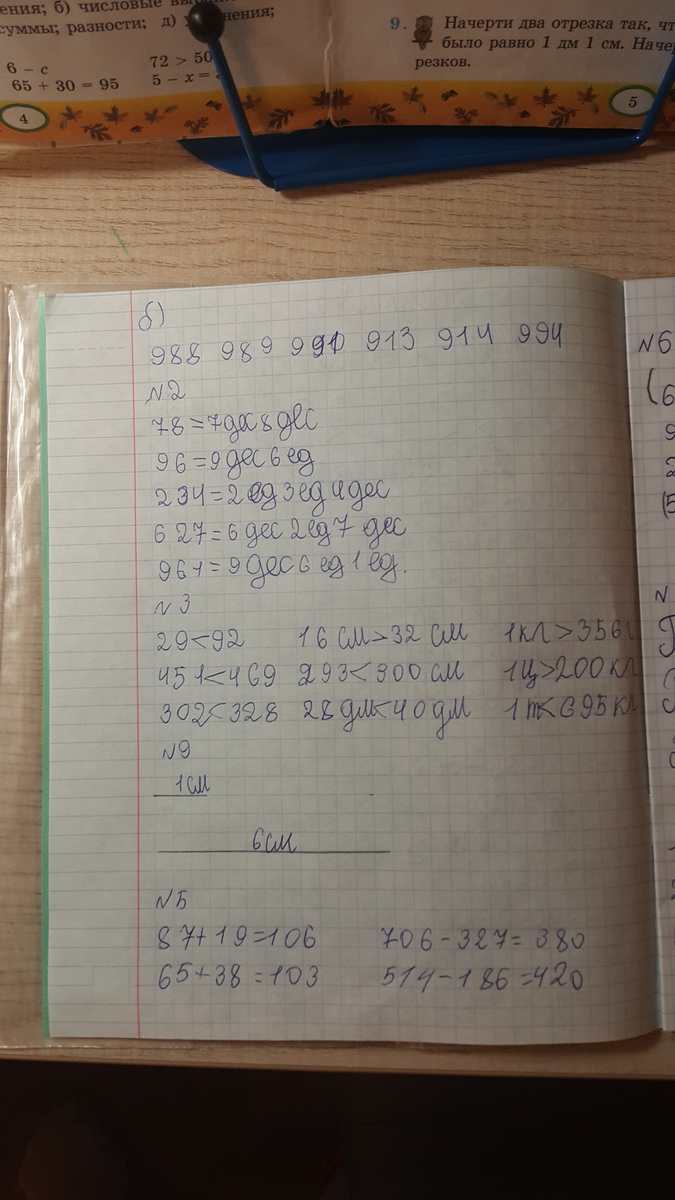 ения; б) числовые
суммы; разности; д)
6 – с
72 > 50
65 + 30 = 95
5 – х =
4
9. Начерти два отрезка так, чт
было равно 1 дм 1 см. Наче
резков.
5
б)
988 989 990 913 914 994
№2
78=7дес 8 дес
96=9 дес 6 ед
234=2 ед 3 ед 4 дес
627=6 дес 2 ед 7 дес
961=9 дес 6 ед 1 ед.
№3
29<92 16 см>32 см 1кл>356
451<469 293<300 см 1ц>200 кл
302<328 28 дм<40 дм 1т<695 кл
№9
1см
6см
№5
87+19=106 706-327=380
65+38=103 514-186=420
№6
(6
9
2
(5